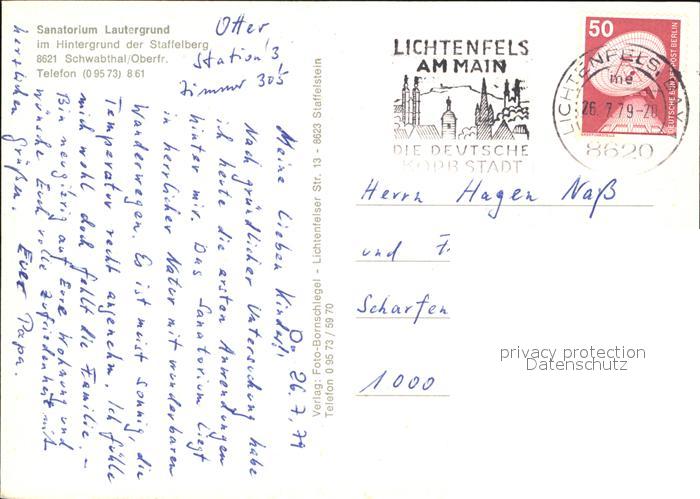 Sanatorium Lautergrund
im Hintergrund der Staffelberg
8621 Schwabthal/Oberfr.
Telefon (0 95 73) 8 61
Otter
Station 3
Zimmer 305
Do, 26.7.79
Meine lieben Kinder!
Nach gründlicher Untersuchung habe
ich heute die ersten Anwendungen
hinter mir. Das Sanatorium liegt
in herrlicher Natur mit wunderbaren
Wanderwegen. Es ist meist sonnig, die
Temperatur recht angenehm. Ich fühle
mich wohl doch fehlt die Familie. –
Bin neugierig auf Eure Wohnung und
wünsche Euch volle Zufriedenheit mit
herzlichen Grüßen. Euer Papa.
Verlag: Foto-Bornschlegel - Lichtenfelser Str. 13 - 8623 Staffelstein
Telefon 0 95 73 / 59 70
LICHTENFELS
AM MAIN
DIE DEUTSCHE
KORBSTADT
50
DEUTSCHE BUNDESPOST BERLIN
LICHTENFELS
me
26.7.79-20
8620
Herrn Hagen Naß
und F.
Scharfen
1000
privacy protection
Datenschutz